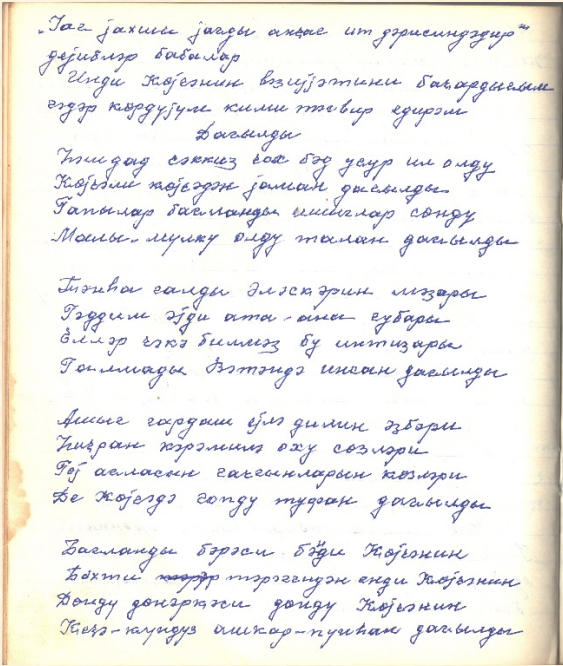 "Гар јахшы јағды анҹаг ит дәрисиндәдир"
дејибләр бабалар
Инди Көјчәнин вәзијјәтини баҹардығым
гәдәр көрдүјүм кими тәсвир едирәм
Дағылды
Һәшдад сәккиз чох бәд уғур ил олду
Көјчәли көјчәдән јаман дағылды
Гапылар бағланды ишыглар сөнду
Малы-мулку олду талан дағылды
Тәнһа галды Әләскәрин мәзары
Гәддим әјди ата-ана губары
Елләр чәкә билмәз бу интизары
Галмады Вәтәндә инсан дағылды
Ашыг гардаш сөјлә дилин әзбәри
Һиҹран кәрәмилә оху сөзләри
Гој ағласын гачгынларын көзләри
Де Көјчәдә гопду туфан дағылды
Бағланды бәрәси бәнди Көјчәнин
Бәхти тәрәгендән енди Көјчәнин
Дөнду дөнәркәси дөнду Көјчәнин
Кеҹә-күндүз ашкар-пүнһан дағылды